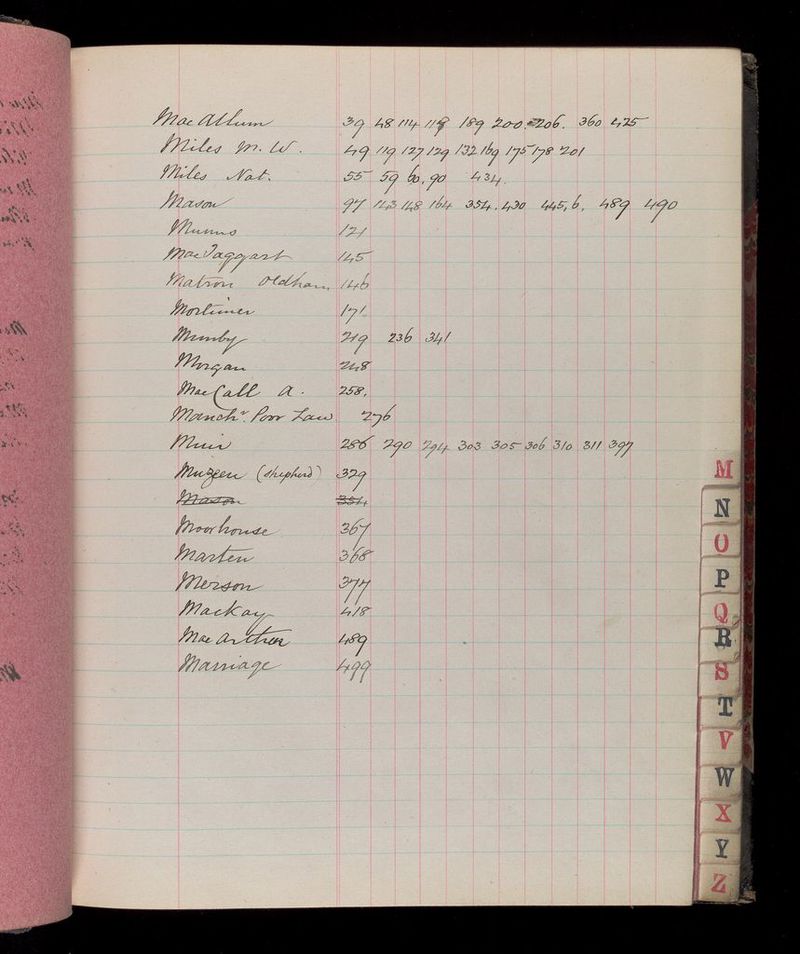 MacAllum 39 48 114 119 189 200. 206. 360 425
Miles M. W. 49 119 127 129 132 169 175 178 201
Miles Nat. 55 59 60, 90 434.
Mason 97 143 148 164 354. 430 445, 6. 489 490
Munns 121
MacTaggart 145
Matron Oldham 146
Mortimer 171
Munby 219 236 341
Morgan 248
MacCall A. 258.
Manchr. Poor Law 276
Muir 286 290 294 303 305 306 310 311 397
(shepherd) 329
Mason 354
Moorhouse 367
Marten 368
Merson 377
Mackay 418
MacArthur 489
Marriage 499
M
N
O
P
Q
R
S
T
V
W
X
Y
Z